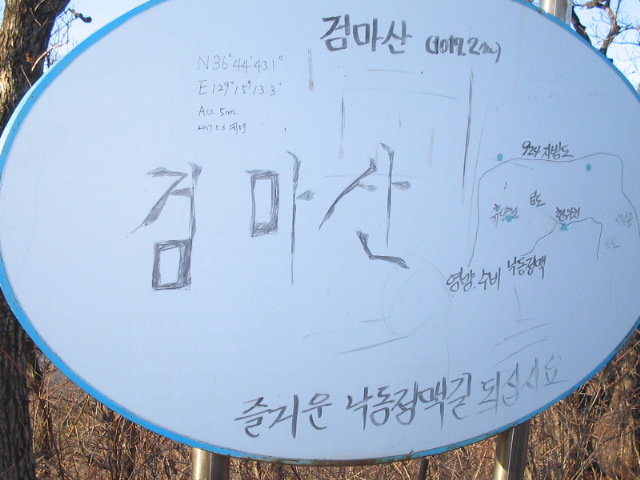 검마산 (1017.2m)
N36°44'43.1"
E129°15'13.3"
Acc 5m
검마산
920 지방도
휴양림
임도
영양 수비 낙동정맥
즐거운 낙동정맥길 되십시요